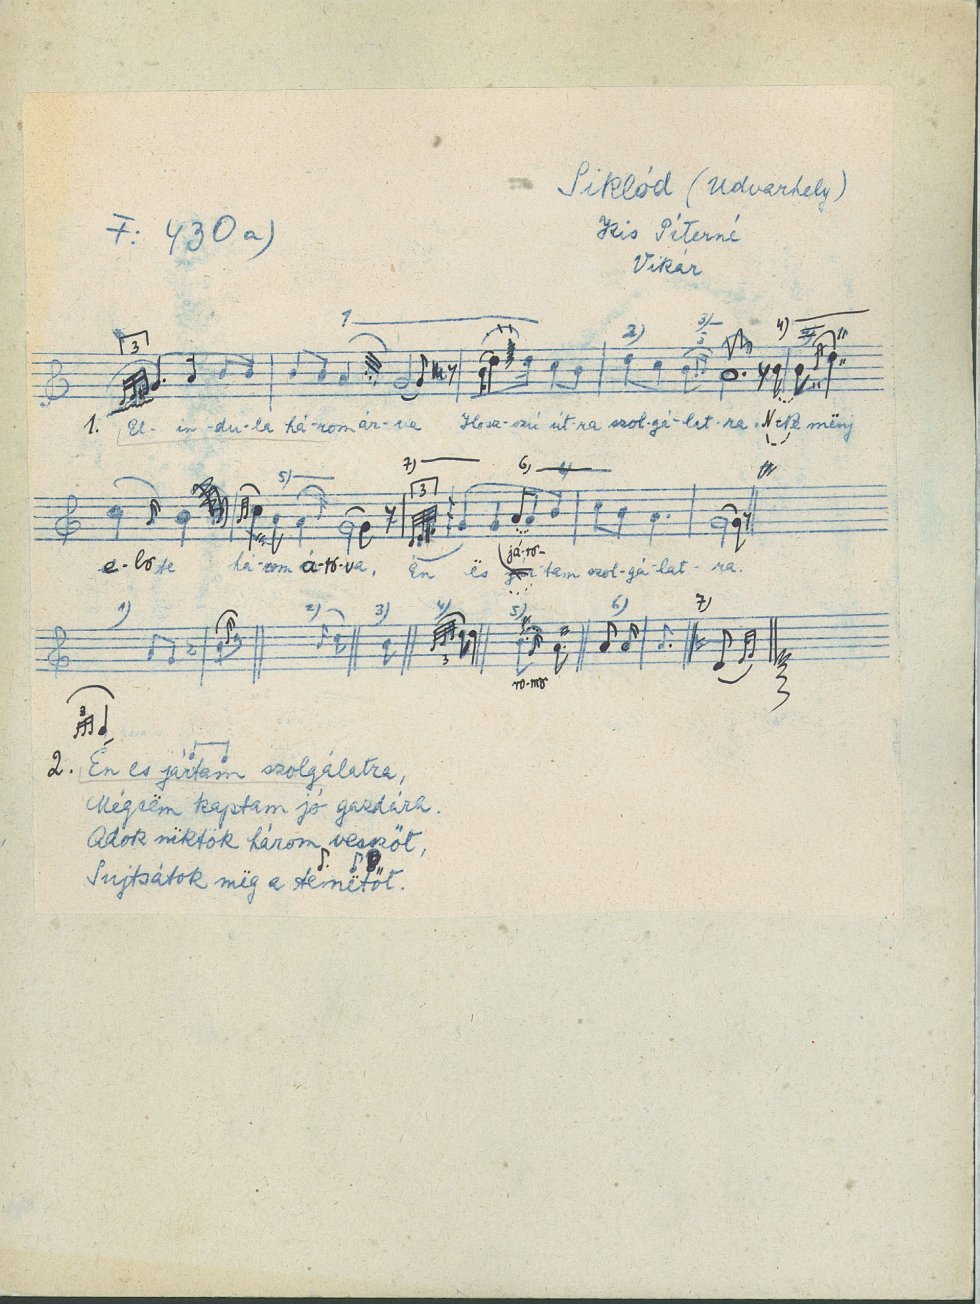 Siklód (Udvarhely)
F: 430a)
Kis Péterné
Vikár
3
1
2)
3)
4)
1. El-in-du-la há-rom ár-va Hosz-szú út-ra szol-gá-lat-ra. Ne menj
5)
7)
3
6)
e-lőte há-rom á-r-va, Én ës já-r- tam szol-gá-lat-ra.
1)
2)
3)
4)
5)
6)
7)
3
3
2. Én es jártam szolgálatra,
Mégsëm kaptam jó gazdára.
Adok niktök három vesszőt,
Sujtsátok mëg a temëtőt.